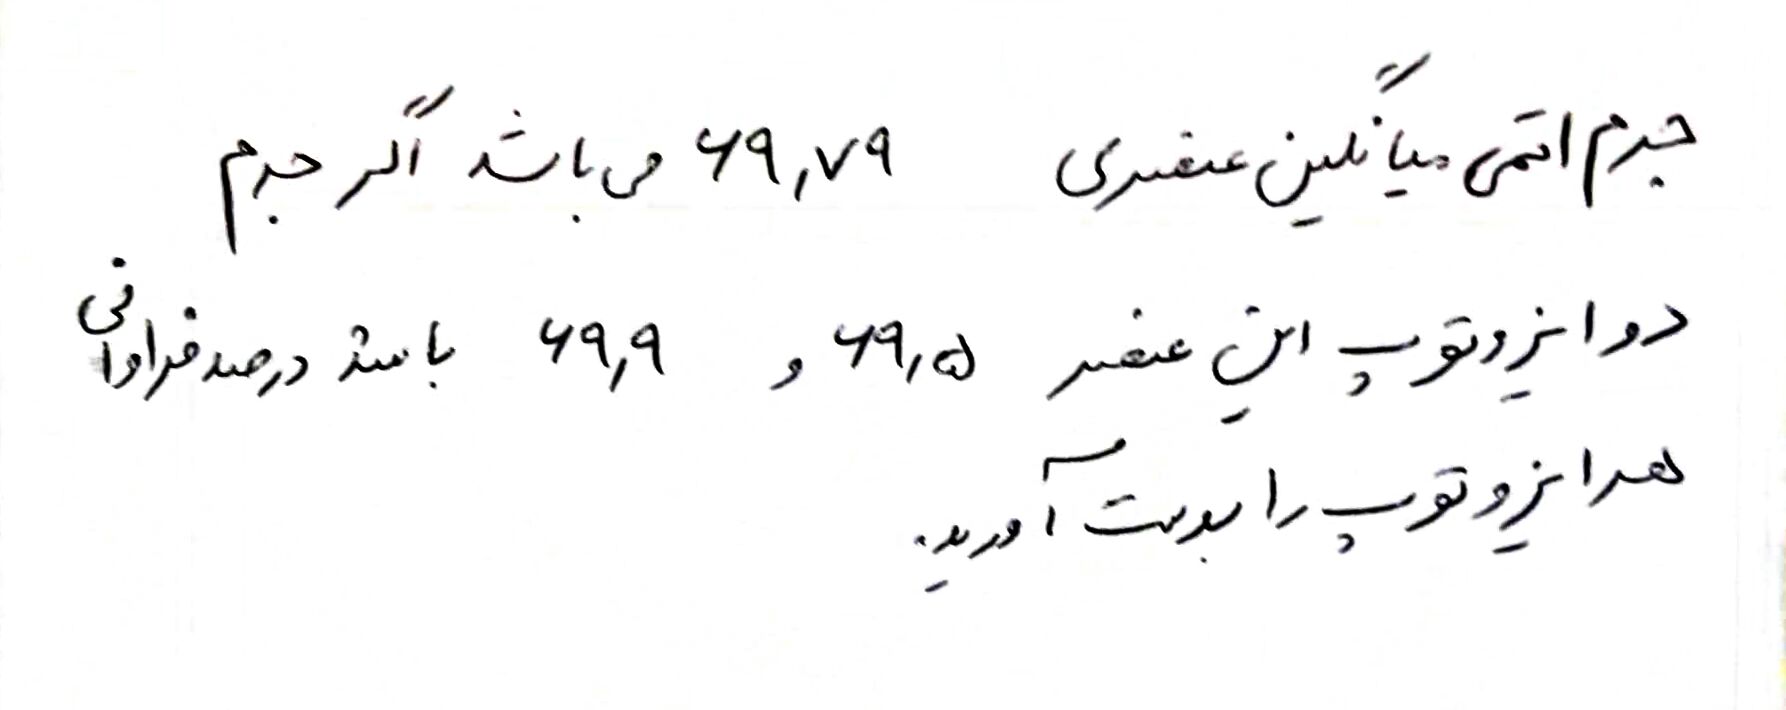 جرم اتمی میانگین عنصری ۶۹,۷۹ می باشد اگر جرم
دو ایزوتوپ این عنصر ۶۹,۵ و ۶۹,۹ باشد درصد فراوانی
هر ایزوتوپ را بدست آورید.